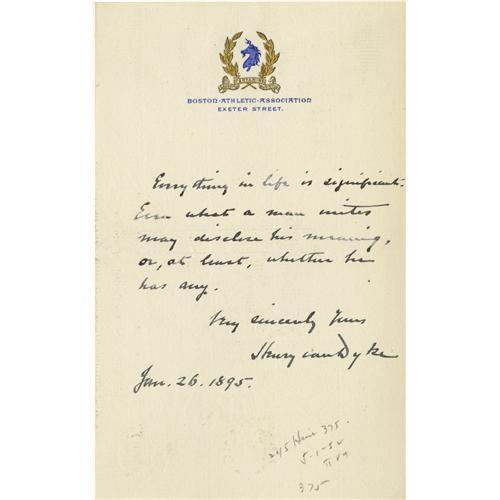 BOSTON·ATHLETIC·ASSOCIATION
EXETER STREET.
Everything in life is significant.
Even what a man writes
may disclose his meaning,
or, at least, whether he
has any.
Very sincerely Yours
Henry van Dyke
Jan. 26. 1895.
245 375.
5-1-52
375